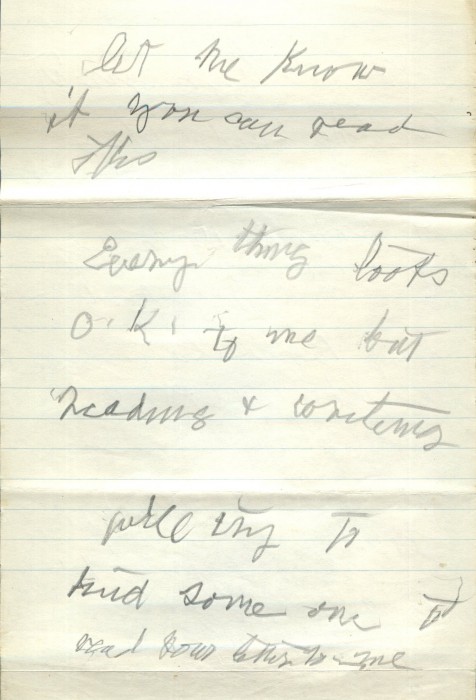 let me know
if you can read
this
Every thing looks
O.K. to me but
Reading & writing
will try to
find some one to
read your letter to me